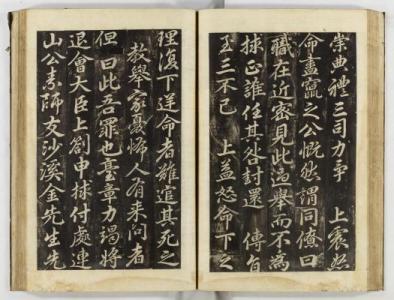 崇典禮三司力爭 上震怒
命盡竄之公慨然謂同僚曰
職在近密見此過舉而不爲
捄正誰任其咎封還 傳旨
至三不已 上益怒命下之
理復下逆命者雖追其死之
教舉家憂怖人有来問者
但曰此吾罪也臺章力竭將
退會大臣上劄申捄付處連
山公素師友沙溪金先生先